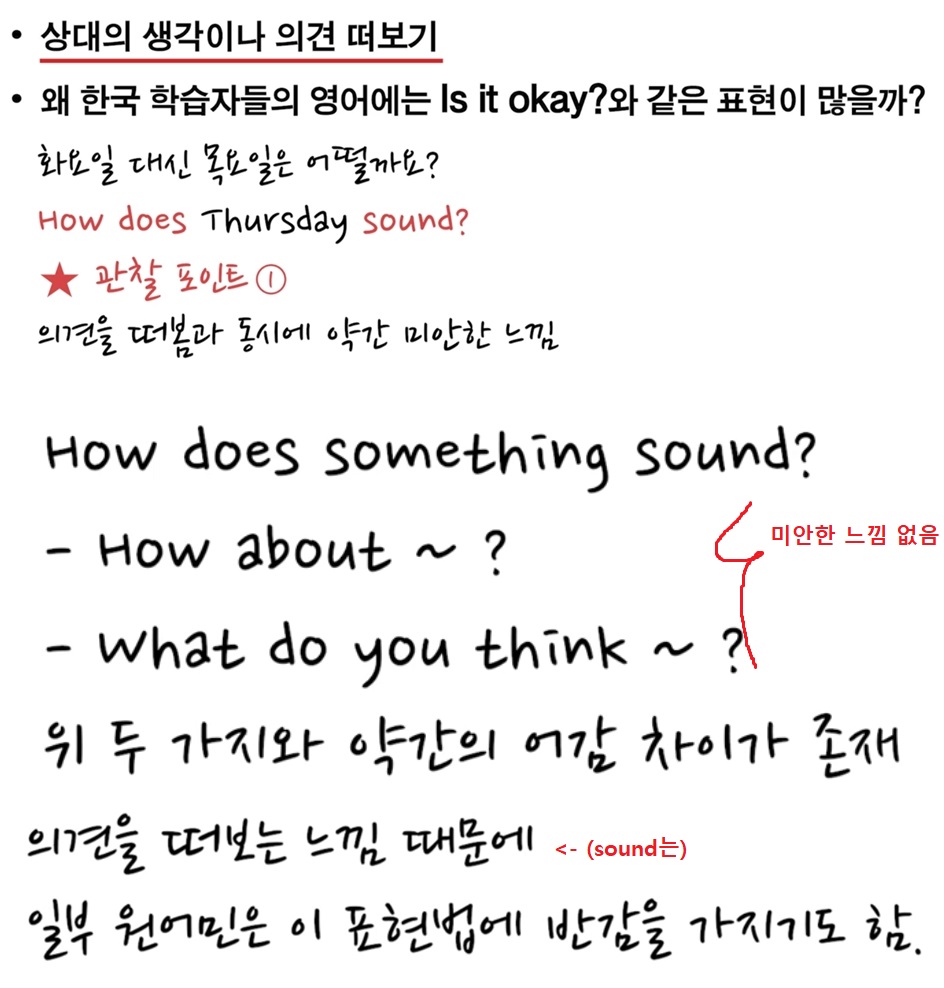 • 상대의 생각이나 의견 떠보기
• 왜 한국 학습자들의 영어에는 Is it okay?와 같은 표현이 많을까?
화요일 대신 목요일은 어떨까요?
How does Thursday sound?
★ 관찰 포인트 ①
의견을 떠봄과 동시에 약간 미안한 느낌
How does something sound?
- How about ~ ?
미안한 느낌 없음
- What do you think ~ ?
위 두 가지와 약간의 어감 차이가 존재
의견을 떠보는 느낌 때문에 <- (sound는)
일부 원어민은 이 표현법에 반감을 가지기도 함.